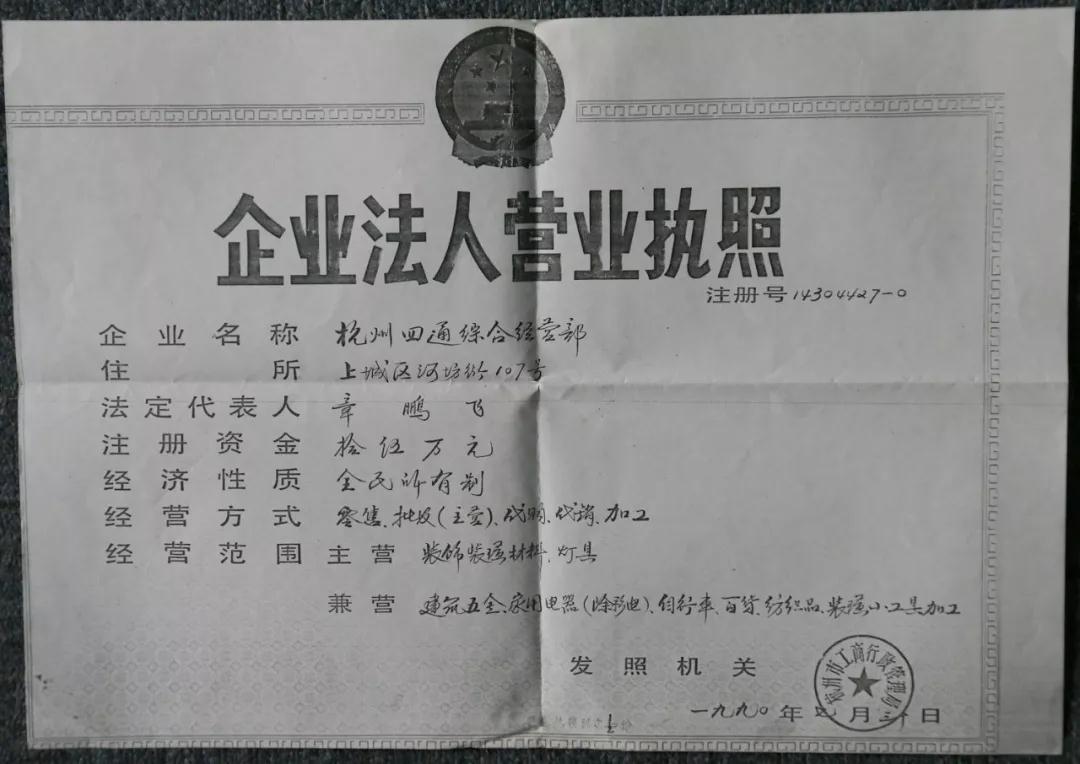 企业法人营业执照
注册号14304427-0
企业名称 杭州四通综合经营部
住所 上城区河坊街107号
法定代表人 章鹏飞
注册资金 拾伍万元
经济性质 全民所有制
经营方式 零售、批发(主营)、代购、代销、加工
经营范围 主营 装饰装璜材料、灯具
兼营 建筑五金、家用电器(除彩电)、自行车、百货、纺织品、装璜小工具加工
发照机关
杭州市工商行政管理局
一九九〇年 月 日